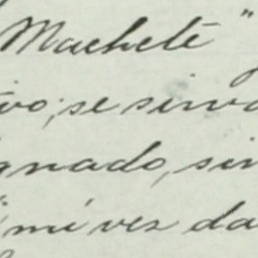 Machete"
ivo; se sirva
gnado, sin
mi vez da